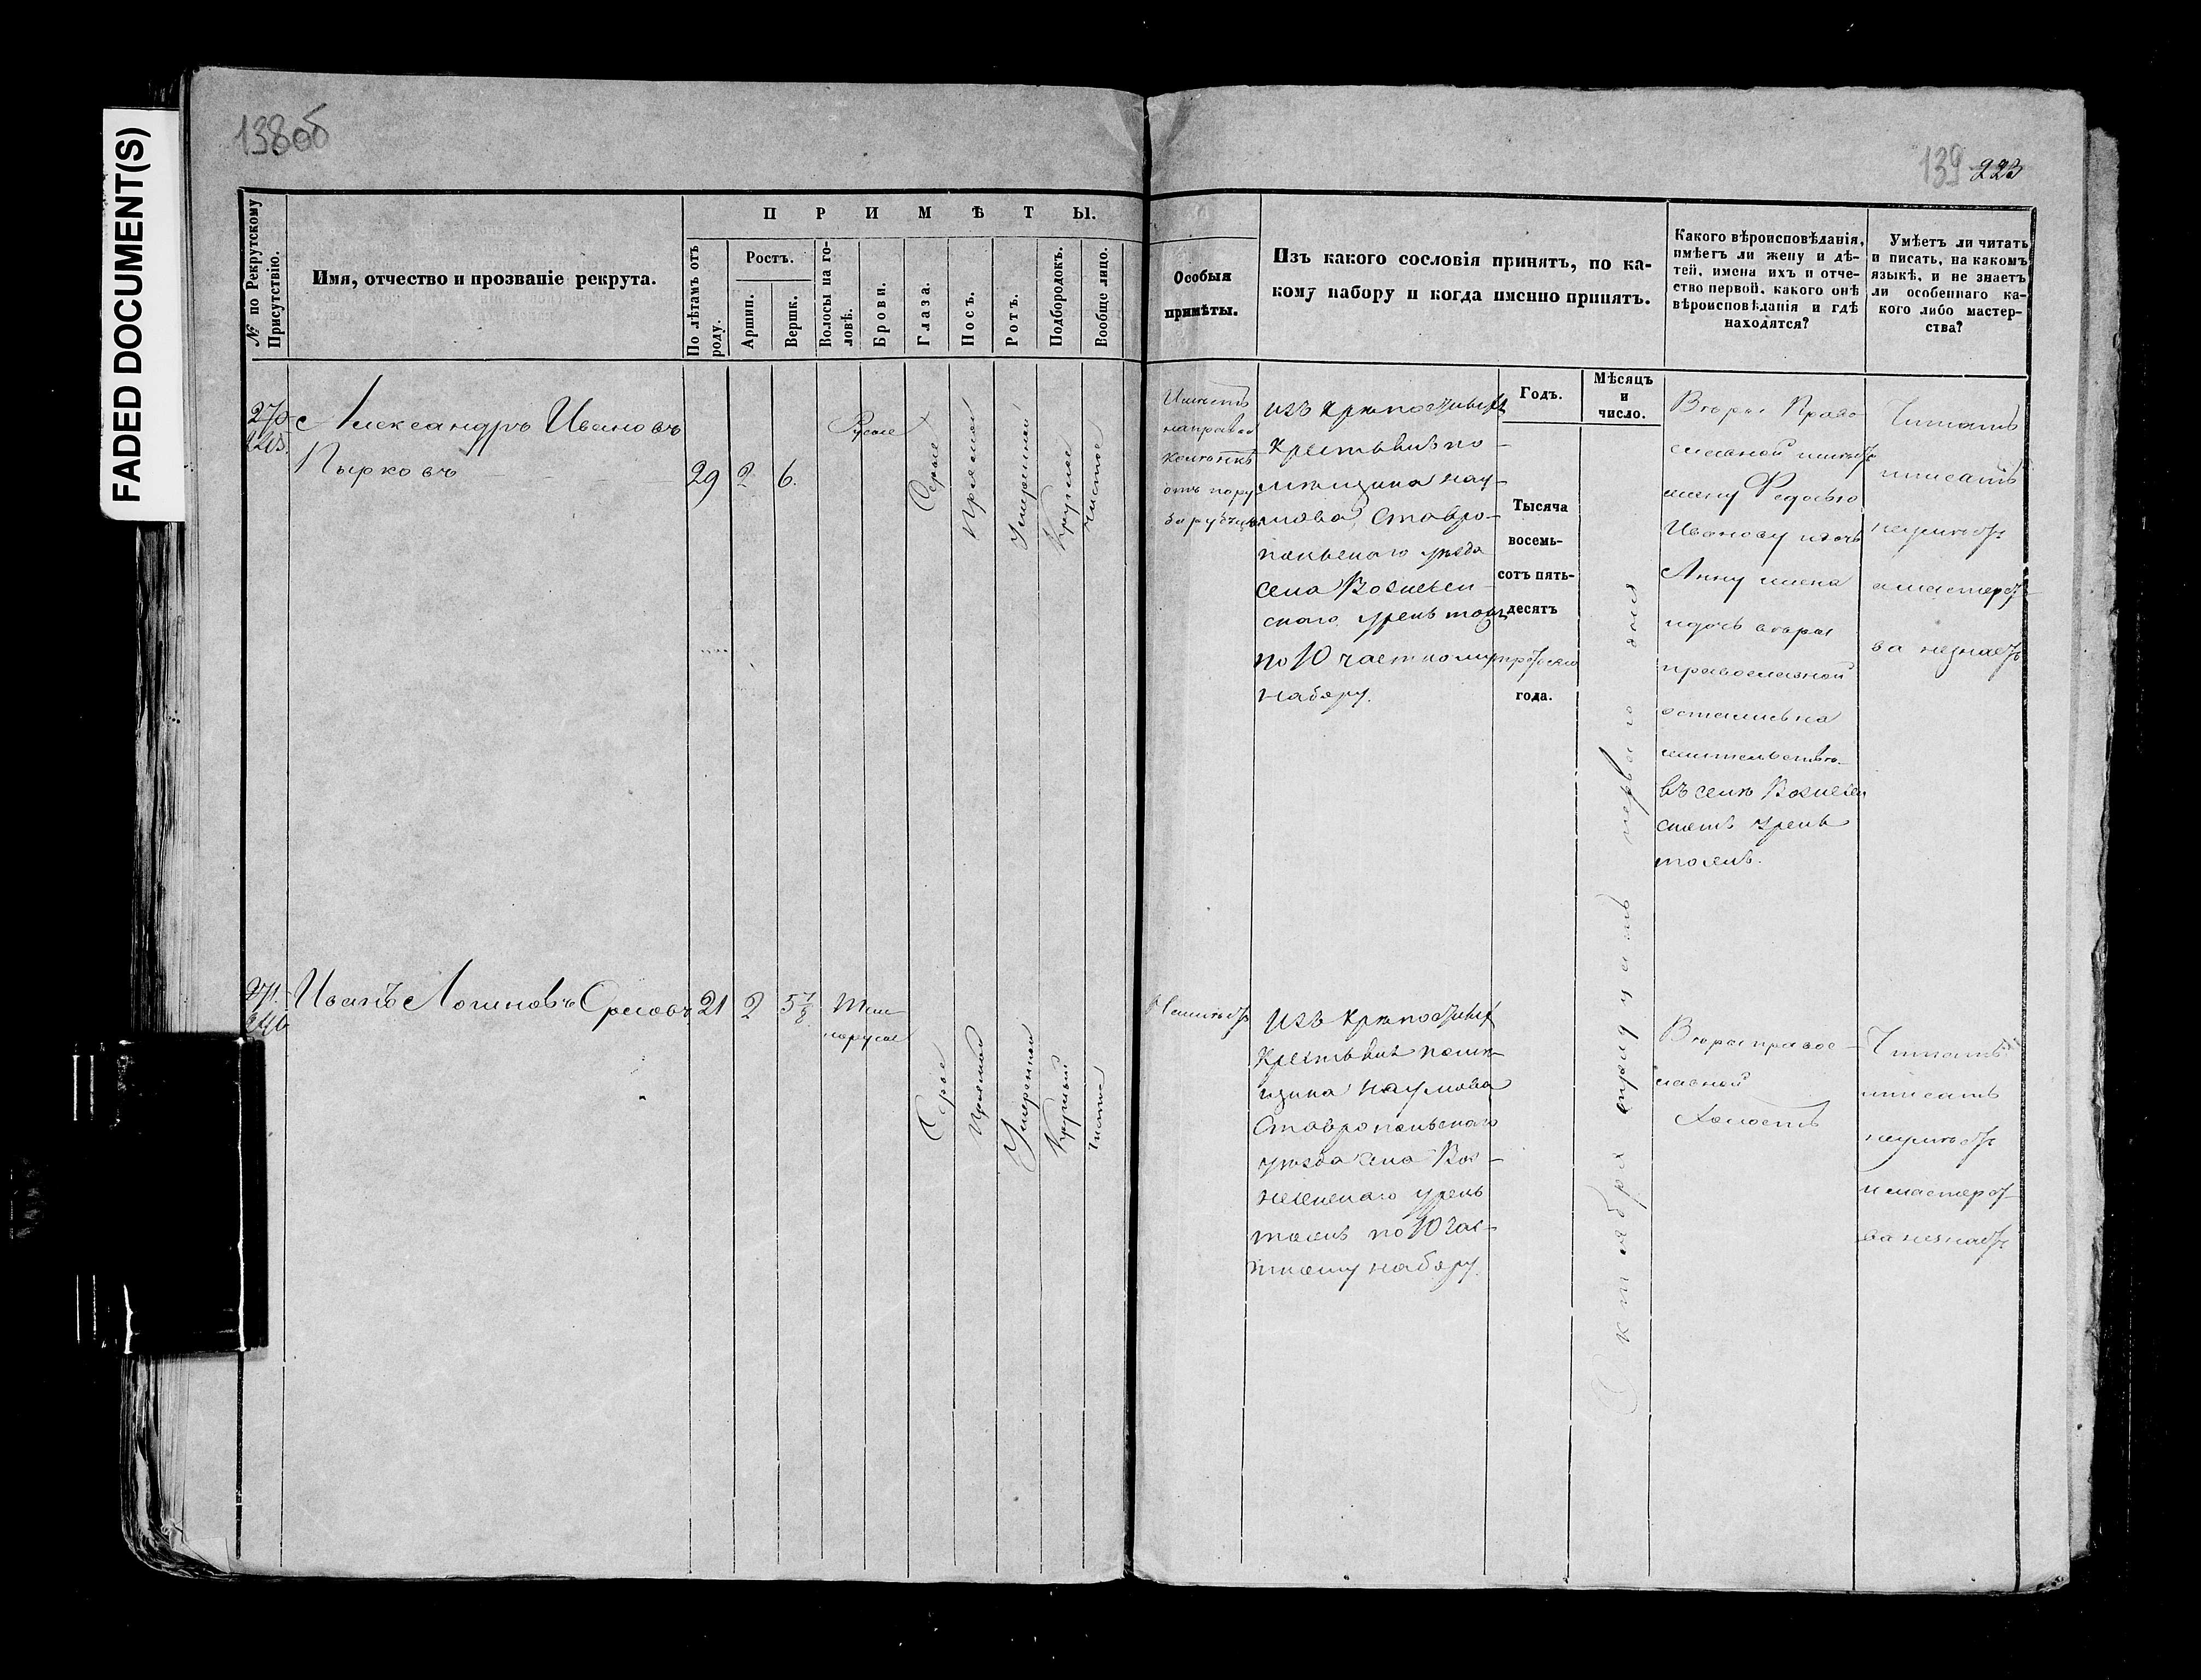 FADED DOCUMENT(S)
138об
139 223
№ по Рекрутскому Присутствію.
Имя, отчество и прозваніе рекрута.
ПРИМѢТЫ.
По лѣтамъ отъ роду.
Ростъ.
Аршин.
Вершк.
Волосы на головѣ.
Брови.
Глаза.
Носъ.
Ротъ.
Подбородокъ.
Вообще лицо.
Особыя
примѣты.
Изъ какого сословія принятъ, по ка-
кому набору и когда именно принятъ.
Какого вѣроисповѣданія,
имѣетъ ли жену и дѣ-
тей, имена ихъ и отче-
ство первой, какого онѣ
вѣроисповѣданія и гдѣ
находятся?
Умѣетъ ли читать
и писать, на какомъ
языкѣ, и не знаетъ
ли особеннаго ка-
кого либо мастер-
ства?
Годъ.
Мѣсяцъ
и
число.
270
Александръ Ивановъ
Пырковъ
29 2 6.
Русые
Серые
Прямой
Умеренной
Круглое
чистое
Имеетъ
на правой
изъ крепостныхъ
крестьянъ по-
мещика Нау-
мова Ставро-
польскаго уезда
села Вознесен-
скаго Урень тожъ
по 10 частному
набору.
Тысяча
восемь-
сотъ пять-
десятъ
года.
Октября тридцать первого дня
Веры Право-
славной имеетъ
жену Федосью
Иванову и дочь
Анну жена
и дочь веры
православной
остались на
жительстве
въ селе Вознесен
скомъ Урень
тожъ.
Читать
писать
неумеетъ
а мастерст-
ва незнаетъ
271
Иванъ Логиновъ Орловъ
21 2 5 1/8
Тем-
норусые
Серые
Прямой
Умеренной
Круглый
Чистое
Неимеетъ
Изъ крепостныхъ
крестьянъ поме-
щика Наумова
Ставропольскаго
уезда села Воз-
несенскаго Урень
тожъ по 10 час-
тному набору.
Веры правос-
лавной
Холостъ
Читать
писать
неумеетъ
и мастерст-
ва незнаетъ